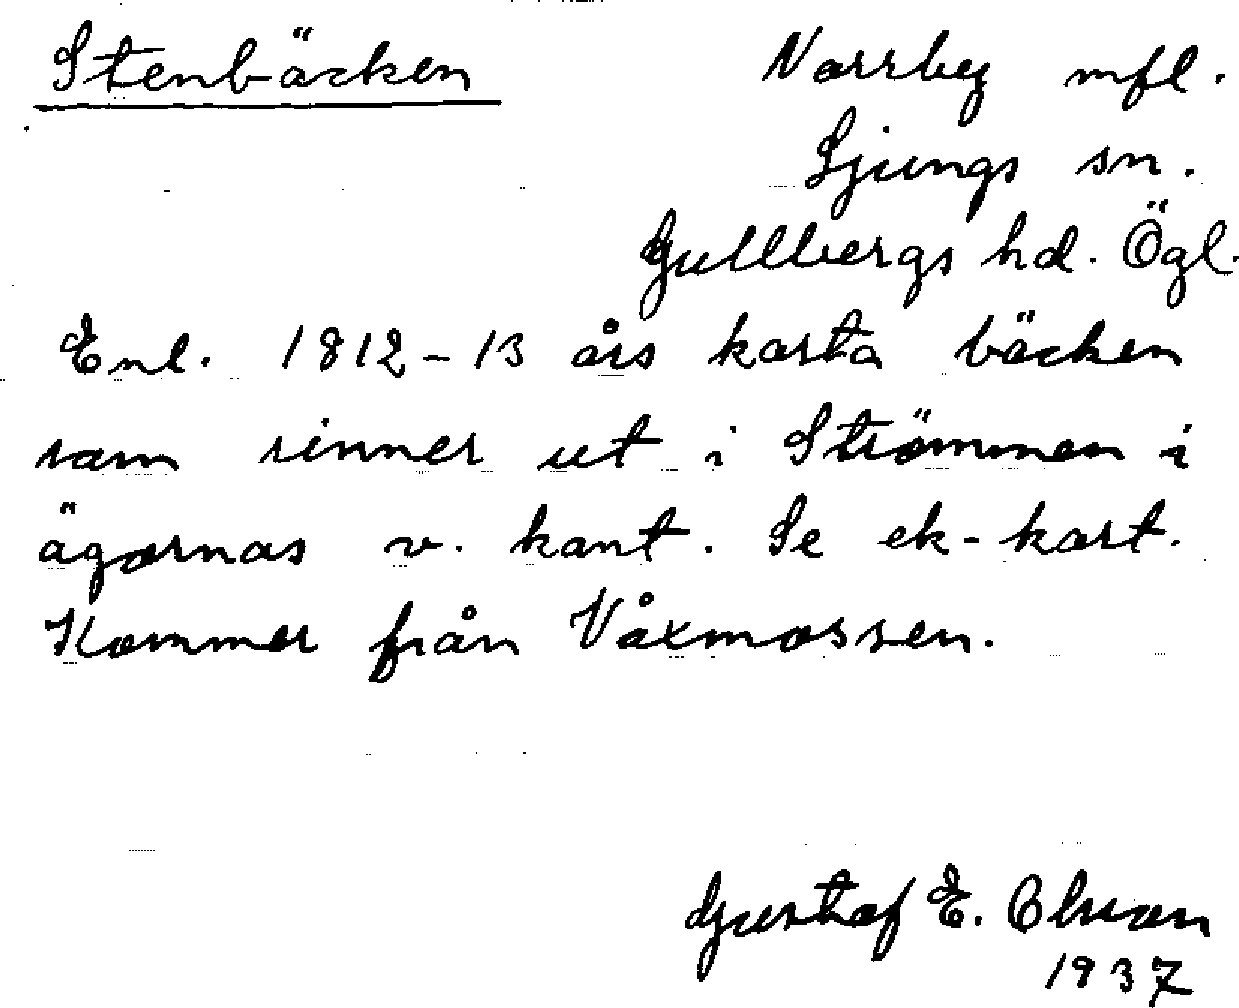 Stenbäcken
Norrby mfl.
Ljungs sn.
Gullbergs hd. Ögl.
Enl. 1812-13 års karta bäcken
som rinner ut i Strömmen i
ägornas v. kant. Se ek-kart.
Kommer från Våxmossen.
Gustaf E.
1937